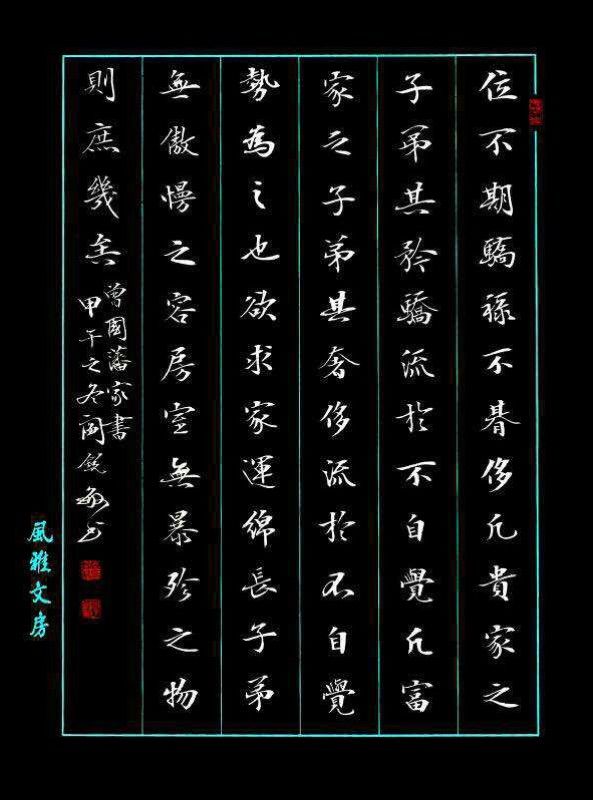 位不期驕祿不朞侈凡貴家之
子弟其矜驕流於不自覺凡富
家之子弟其奢侈流於不自覺
勢為之也欲求家運綿長子弟
無傲慢之容房室無暴殄之物
則庶幾矣
曾國藩家書
甲午之冬閻銳敏书
風雅文房